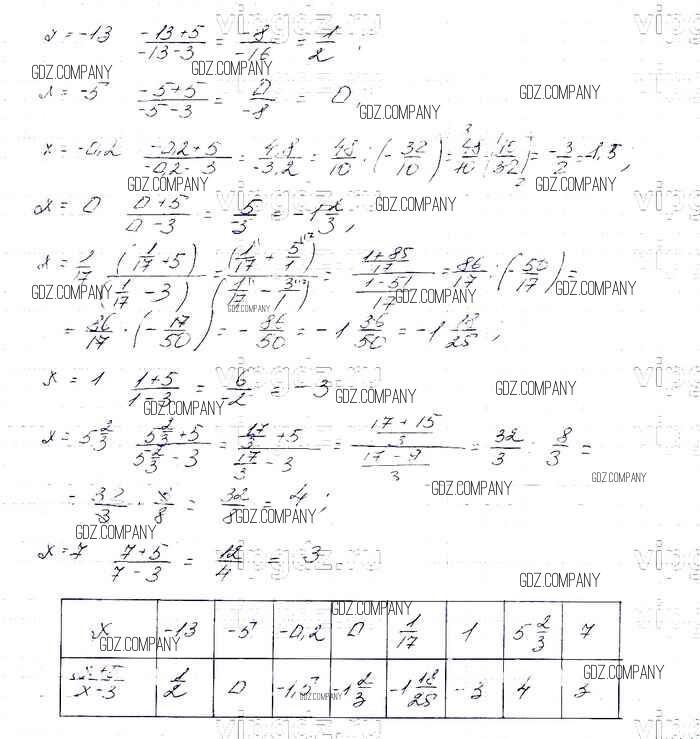 vipgdz.ru
x = -13 (-13+5)/(-13-3) = -8/-16 = 1/2 ;
GDZ.COMPANY GDZ.COMPANY
x = -5 (-5+5)/(-5-3) = 0/-8 = 0,
GDZ.COMPANY GDZ.COMPANY
x = -0,2 (-0,2+5)/(-0,2-3) = 4,8/-3,2 = 48/10 : (-32/10) = 48/10 · (10/32) = -3/2 = -1,5 ;
GDZ.COMPANY GDZ.COMPANY
x = 0 (0+5)/(0-3) = 5/3 = -1 2/3 ,
GDZ.COMPANY
x = 1/17 (1/17+5)/(1/17-3) = (1/17 + 5/1)/(1/17 - 3/1) = ((1+85)/17)/((1-51)/17) = 86/17 : (-50/17) =
GDZ.COMPANY GDZ.COMPANY GDZ.COMPANY GDZ.COMPANY
= 86/17 · (-17/50) = -86/50 = -1 36/50 = -1 18/25 ;
x = 1 (1+5)/(1-3) = 6/-2 = -3
GDZ.COMPANY GDZ.COMPANY GDZ.COMPANY
x = 5 2/3 (5 2/3+5)/(5 2/3-3) = (17/3+5)/(17/3-3) = ((17+15)/3)/((17-9)/3) = 32/3 : 8/3 =
GDZ.COMPANY GDZ.COMPANY
= 32/3 · 3/8 = 32/8 = 4 ;
GDZ.COMPANY GDZ.COMPANY
x = 7 (7+5)/(7-3) = 12/4 = 3
vipgdz.ru
GDZ.COMPANY GDZ.COMPANY
x -13 -5 -0,2 0 1/17 1 5 2/3 7
GDZ.COMPANY GDZ.COMPANY
(x+5)/(x-3) 1/2 0 -1,5 -1 2/3 -1 18/25 -3 4 3
GDZ.COMPANY